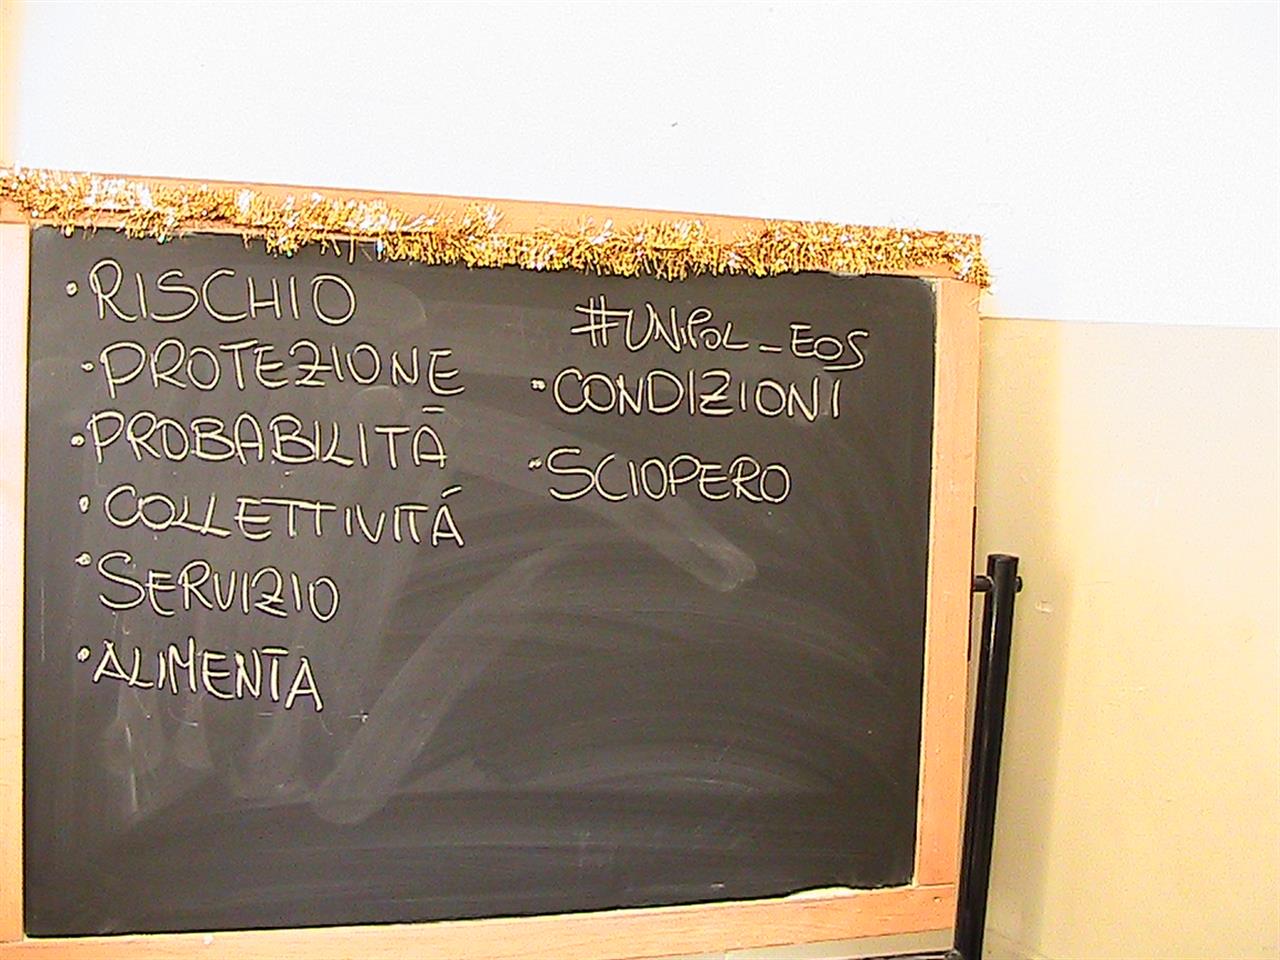 • RISCHIO
• PROTEZIONE
• PROBABILITÀ
• COLLETTIVITÁ
• SERVIZIO
• ALIMENTA
#UNiPOL_EOS
• CONDIZIONI
• SCIOPERO